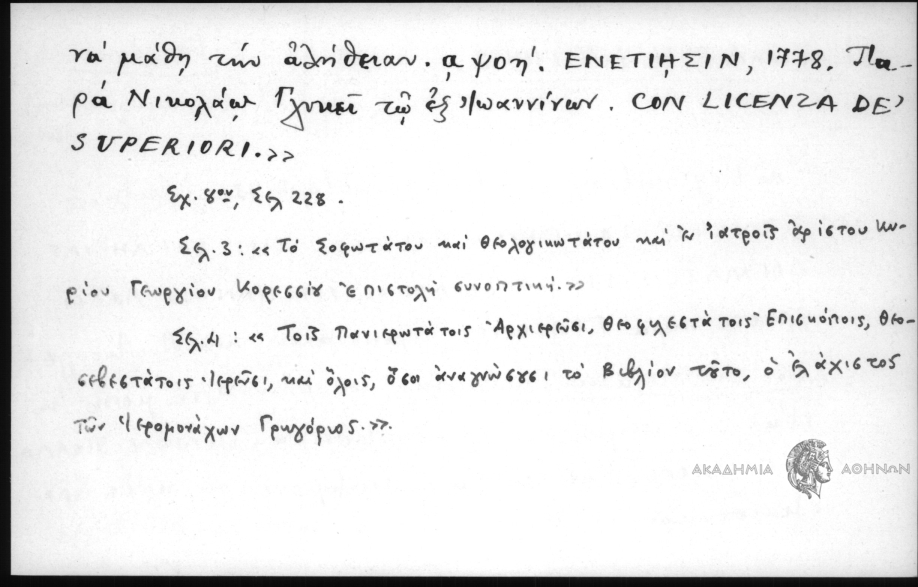 νά μάθη τήν ἀλήθειαν. α ψοή. ΕΝΕΤΙΗΣΙΝ, 1778. Πα-
ρά Νικολάῳ Γλυκεῖ τῷ ἐξ Ἰωαννίνων. CON LICENZA DE'
SUPERIORI.»
Σχ. 8ον, Σελ 228.
Σελ. 3: «Τό Σοφωτάτου καί Θεολογικωτάτου καί ἐν Ἰατροῖς ἀρίστου Κυ-
ρίου Γεωργίου Κορεσσίου Ἐπιστολή συνοπτική.»
Σελ. 4: «Τοῖς Πανιερωτάτοις Ἀρχιερεῦσι, Θεοφιλεστάτοις Ἐπισκόποις, Θεο-
σεβεστάτοις Ἱερεῦσι, καί ὅλοις, ὅσοι ἀναγνώσουσι τό Βιβλίον τοῦτο, ὁ ἐλάχιστος
τῶν Ἱερομονάχων Γρηγόριος.»
ΑΚΑΔΗΜΙΑ ΑΘΗΝΩΝ